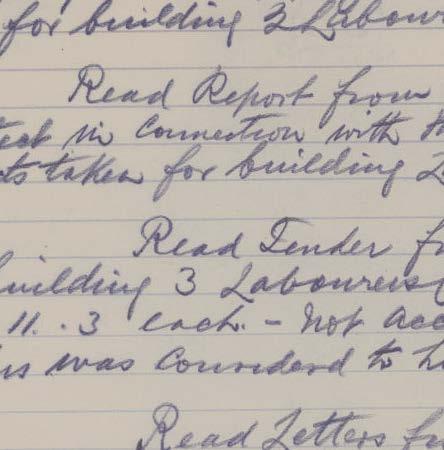 for building 3 Labour
Read Report from
tect in Connection with
ts taken for building
Read Tender f
building 3 Labourers
11..3 each. - Not acc
was Considered to
Read Letters fr